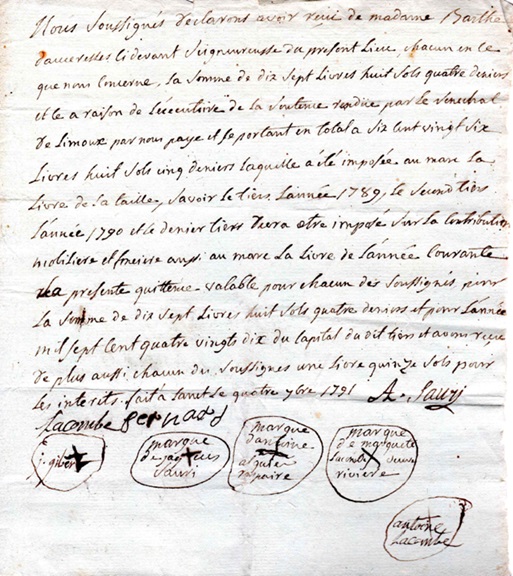 Nous Soussignés déclarons avoir reçu de madame Barthe
d'auceresses ci devant Seigneuresse du présent Lieu, chacun en ce
que nous concerne, La somme de dix Sept Livres huit Sols quatre deniers
et ce a raison de L'exécutoire de la Sentence rendue par Le Senechal
De Limoux par nous payé et se portant en total a Six cent vingt Six
Livres huit Sols cinq deniers Laquelle a été imposée au marc La
Livre de la taille, Savoir Le tiers L'année 1789, Le Second tiers
L'année 1790 et Le dernier tiers devra etre imposé Sur La Contribution
mobiliere et fonciere aussi au marc La Livre de L'année Courante
La présente quittence valable pour chacun des Soussignés pour
La Somme de dix Sept Livres huit Sols quatre deniers et pour L'année
mil Sept Cent quatre vingts dix du capital du dit tiers et avons reçu
De plus aussi chacun du Soussignés une Livre quinze Sols pour
Les interets. fait a Le quatre 7bre 1791 A. Sauri
Lacombe Bernard
j. gibert
marque de jacques Sauri
marque d'antoine
marque de marguerite Lacombe veuve riviere
antoine Lacombe